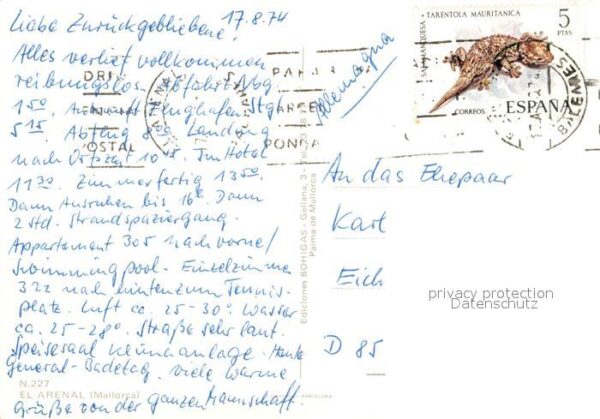 Liebe Zurückgebliebene! 17.8.74
Alles verlief vollkommen
reibungslos. Abfahrt Nbg
1⁵⁰. Ankunft Flughafen Stgt
5¹⁵. Abflug Landung
nach Ortszeit 10⁴⁵. Im Hotel
11³⁰. Zimmerfertig 13⁵⁰.
Dann Ausruhen bis 16⁰⁰. Dann
2 Std. Strandspaziergang.
Appartement 305 nach vorne/
Swimmingpool. Einzelzimmer
322 nach hinten zum Tennis-
platz. Luft ca. 25-30°. Wasser
ca. 25-28°. Straße sehr laut.
Speisesaal Klimaanlage. Heute
General-Badetag. Viele warme
N.227
EL ARENAL (Mallorca)
Grüße von der ganzen Mannschaft.
Ediciones BOHIGAS - Galiana, 3 -
Palma de Mallorca
BARCELONA
Alemagna
TARENTOLA MAURITANICA
SALAMANQUESA
5
PTAS
CORREOS
ESPAÑA
BALEARES
PONGA
OSTAL
An das Ehepaar
Karl
Eich
D 85
privacy protection
Datenschutz